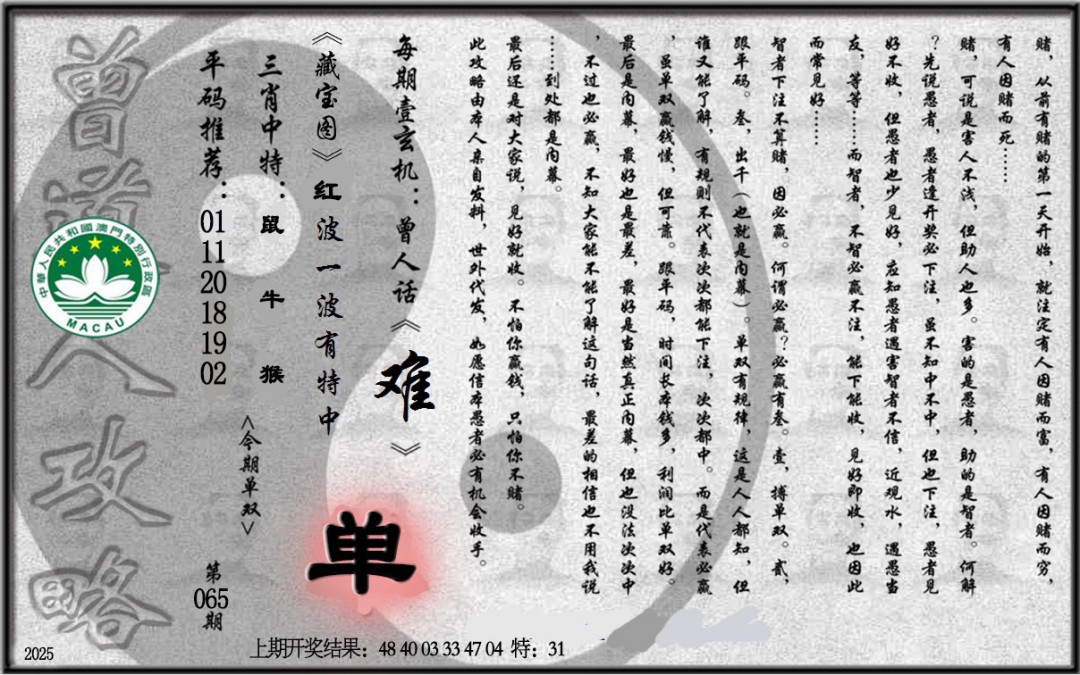 赌，从前有赌的第一天开始，就注定有人因赌而富，有人因赌而穷，
有人因赌而死……
赌，可说是害人不浅，但助人也多。害的是愚者，助的是智者。何解
？先说愚者，愚者逢开奖必下注，虽不知中不中，但也下注，愚者见
好不收，但愚者也少见好，应知愚者遇害智者不信，近观水，遇愚当
友，等等……而智者，不智必赢不注，能下能收，见好即收，也因此
而常见好……
智者下注不算赌，因必赢。何谓必赢？必赢有叁。壹，搏单双。贰，
跟平码。叁，出千（也就是内幕）。单双有规律，这是人人都知，但
谁又能了解，有规则不代表次次都能下注，次次都中。而是代表必赢
，虽单双赢钱慢，但可靠。跟平码，时间长本钱多，利润比单双好。
最后是内幕，最好也是最差，最好是当然真正内幕，但也没法次次中
，不过也必赢，不知大家能不能了解这句话，最差的相信也不用我说
……到处都是内幕。
最后还是对大家说，见好就收。不怕你赢钱，只怕你不赌。
此攻略由本人亲自发料，世外代发，如愿信本愚者必有机会收手。
每期壹玄机：曾人话《难》
《藏宝图》红波一波有特中
单
三肖中特：鼠牛猴
<今期单双>
平码推荐：01 11 20 18 19 02
第065期
曾道人攻略
中華人民共和國澳門特別行政區
MACAU
上期开奖结果：48 40 03 33 47 04 特：31
2025